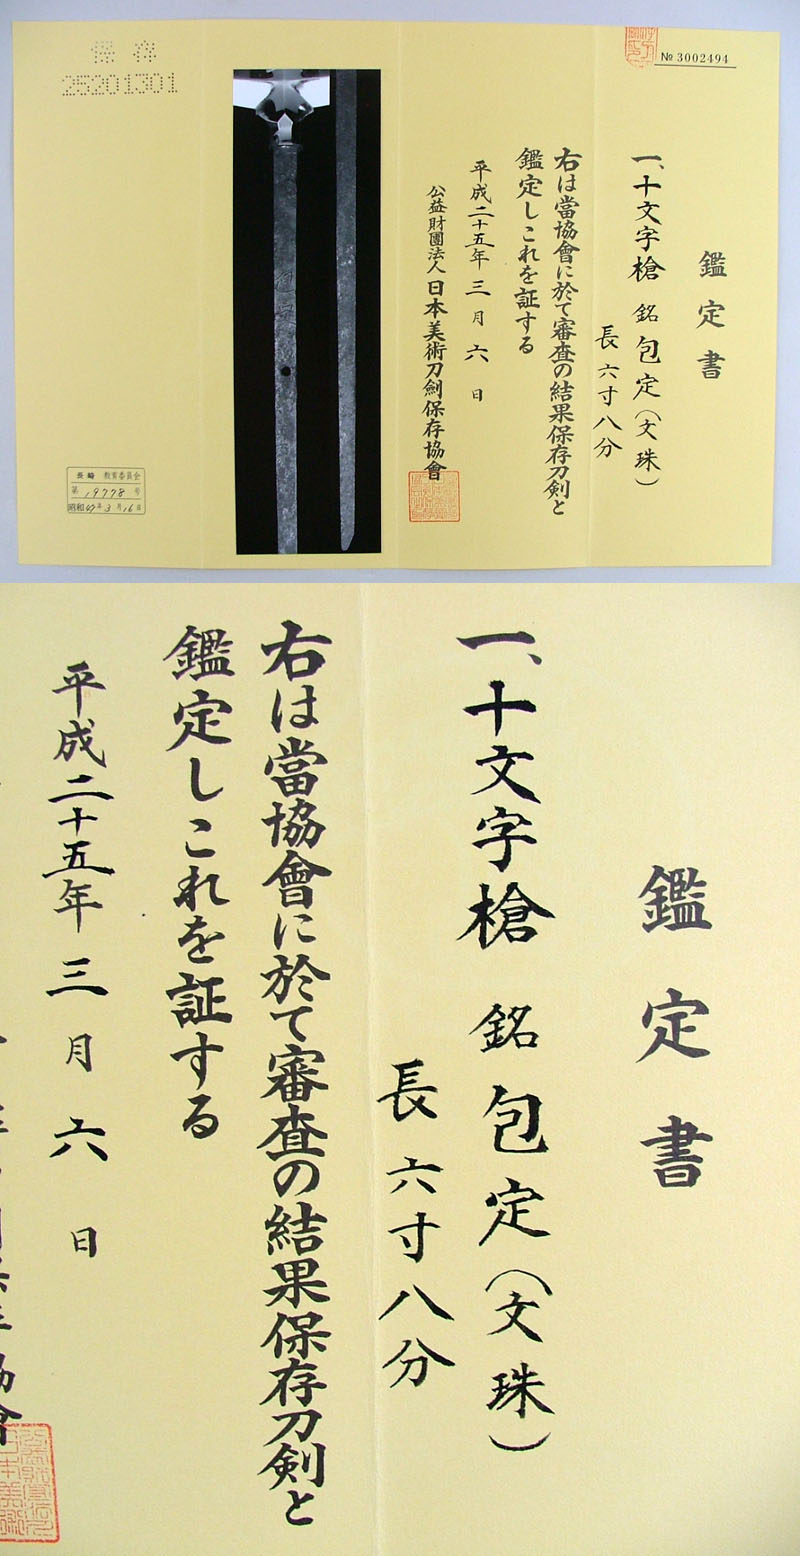 № 3002494
鑑定書
一、十文字槍 銘 包定(文珠)
長 六寸八分
右は當協會に於て審査の結果保存刀剣と
鑑定しこれを証する
平成二十五年 三月 六日
公益財團法人 日本美術刀劍保存協會
保存
25201301
長崎 教育委員会
第 19778 号
昭和47年3月16日
鑑定書
一、十文字槍 銘 包定(文珠)
長 六寸八分
右は當協會に於て審査の結果保存刀剣と
鑑定しこれを証する
平成二十五年 三月 六日